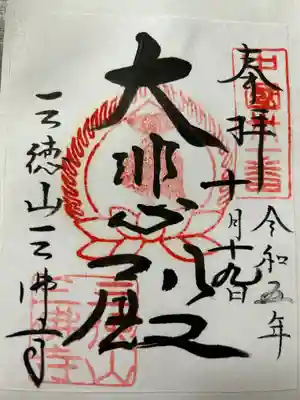 奉拝
令和五年
十月十九日
大悲殿
三徳山三佛寺